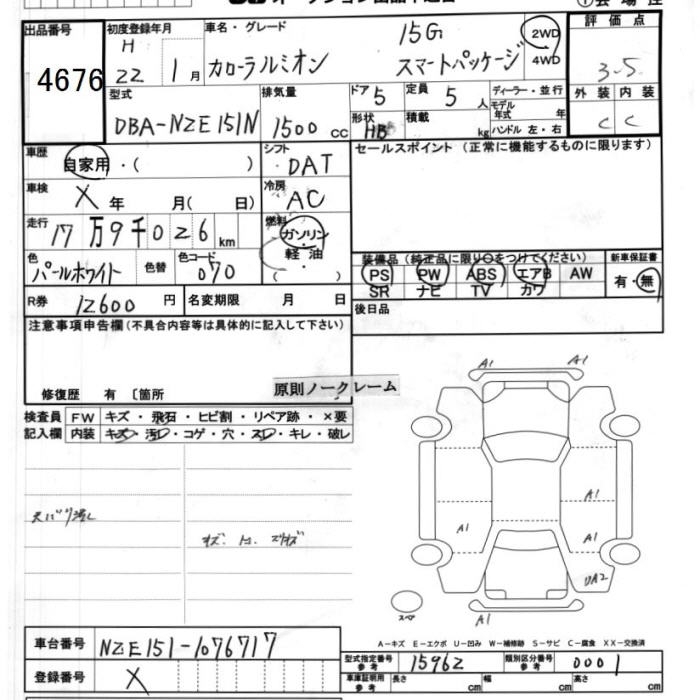 出品番号
4676
初度登録年月
H
22 1月
車名・グレード
15G
カローラルミオン スマートパッケージ
2WD
4WD
評価点
3.5
外装 内装
C C
型式
DBA-NZE151N
排気量
1500 cc
ドア 5
形状 HB
定員 5 人
積載 kg
ディーラー・並行
モデル年式 年
ハンドル 左・右
車歴 自家用・( )
シフト DAT
車検 X 年 月( 日)
冷房 AC
走行 17万9千026km
燃料 ガソリン・軽油・( )
色 パールホワイト 色替 色コード 070
R券 12600 円 名変期限 月 日
セールスポイント (正常に機能するものに限ります)
装備品 (純正品に限り○をつけてください)
PS PW ABS エアB AW
SR ナビ TV カワ
新車保証書
有・無
後日品
注意事項申告欄(不具合内容等は具体的に記入して下さい)
修復歴 有 〔箇所
原則ノークレーム
検査員 FW キズ・飛石・ヒビ割・リペア跡・×要
記入欄 内装 キズ・汚レ・コゲ・穴・スレ・キレ・破レ
A1 A1
A1
A1 A1
UA2
A1
スペア
A-キズ E-エクボ U-凹み W-補修跡 S-サビ C-腐食 XX-交換済
車台番号 NZE151-1076717
登録番号 X
型式指定番号 参考 15962 類別区分番号 参考 0001
車庫証明用 参考 長さ cm 幅 cm 高さ cm